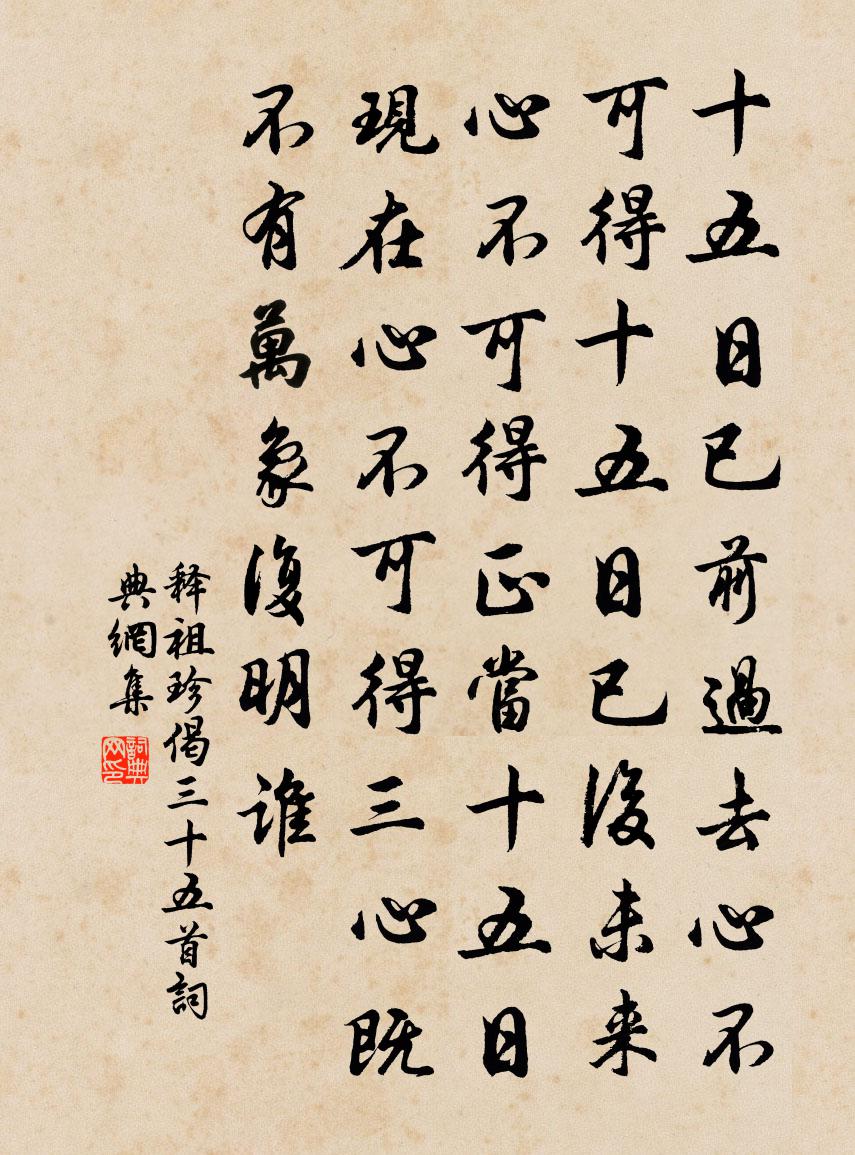 十五日已前過去心不
可得十五日已後未来
心不可得正當十五日
現在心不可得三心既
不有萬象復明誰
释祖珍偈三十五首詞
典網集
詞典
网印